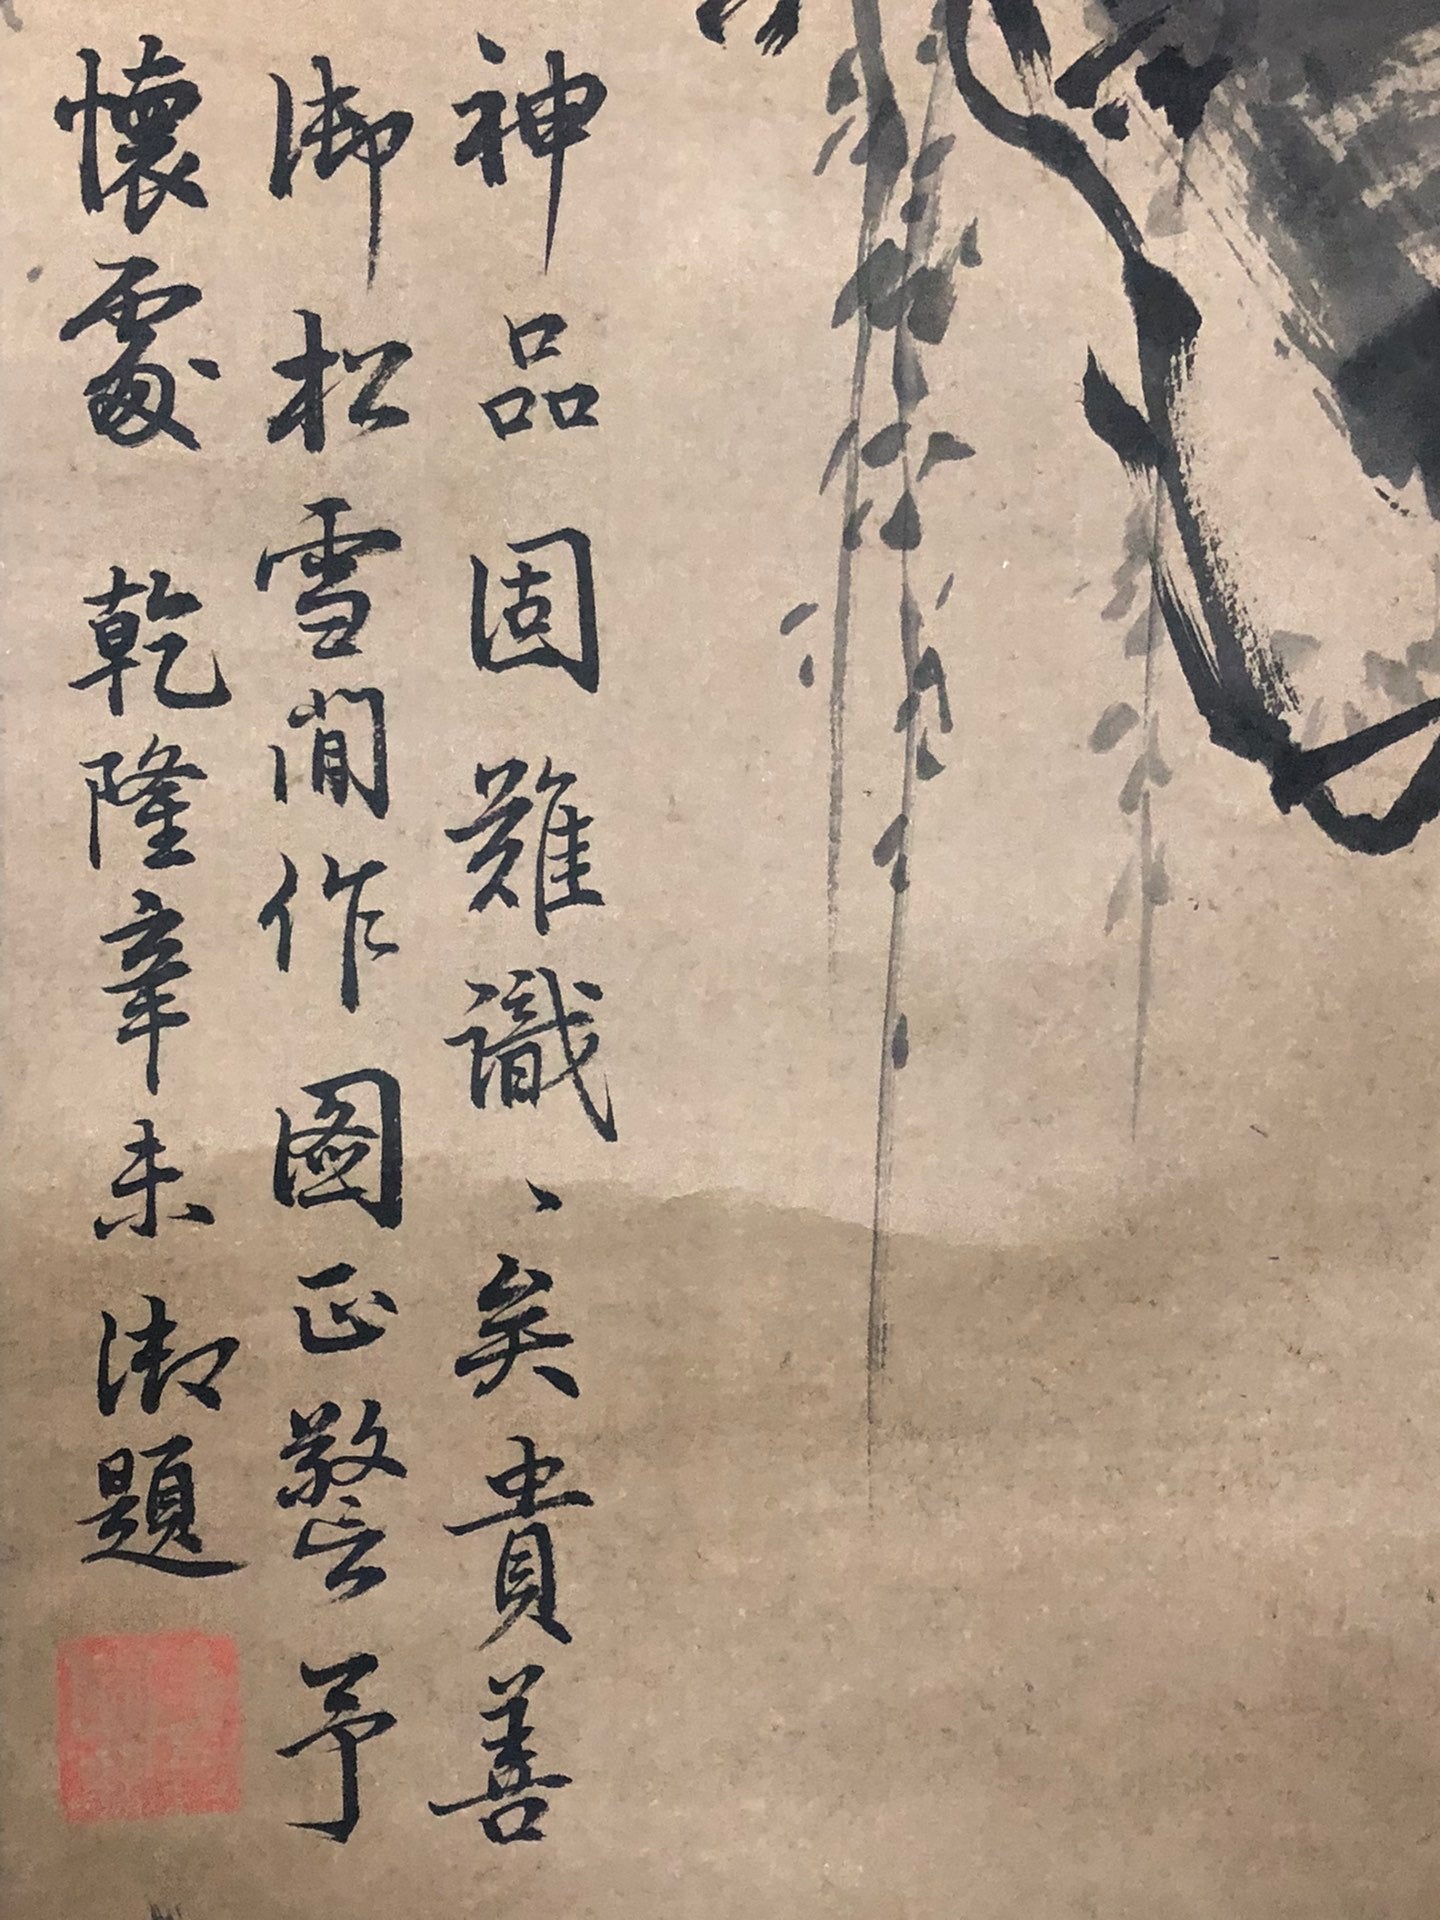 神品固難識、矣貴善
御松雪閒作圖正警予
懷處 乾隆辛未御題